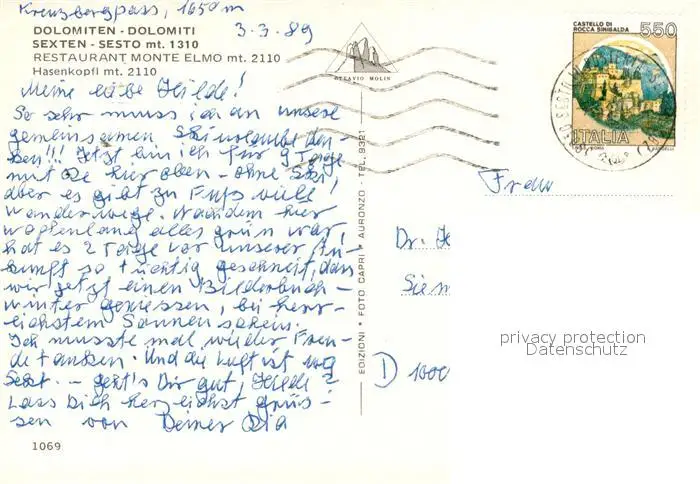 Kreuzbergpass, 1650 m
3.3.89
DOLOMITEN - DOLOMITI
SEXTEN - SESTO mt. 1310
RESTAURANT MONTE ELMO mt. 2110
Hasenkopfl mt. 2110
OTTAVIO MOLIN
CASTELLO DI
ROCCA SINIBALDA
550
ITALIA
Meine liebe Hilde!
So sehr muss ich an unsere
gemeinsamen Skiurlaube den-
ken!!! Jetzt bin ich für 9 Tage
mit hier oben - ohne Ski,
aber es gibt zu Fuß viele
Wanderwege. Nachdem hier
wochenlang alles grün war,
hat es 2 Tage vor unserer An-
kunft so tüchtig geschneit, dass
wir jetzt einen Bilderbuch-
winter geniessen, bei herr-
lichstem Sonnenschein.
Ich musste mal wieder Freu-
de tanken. Und die Luft ist
- geht's Dir gut, Hilde?
Lass Dich herzlichst grüs-
sen von Deiner
1069
EDIZIONI * FOTO CAPRI * AURONZO - TEL. 9321
Frau
Dr.
D 1000
privacy protection
Datenschutz